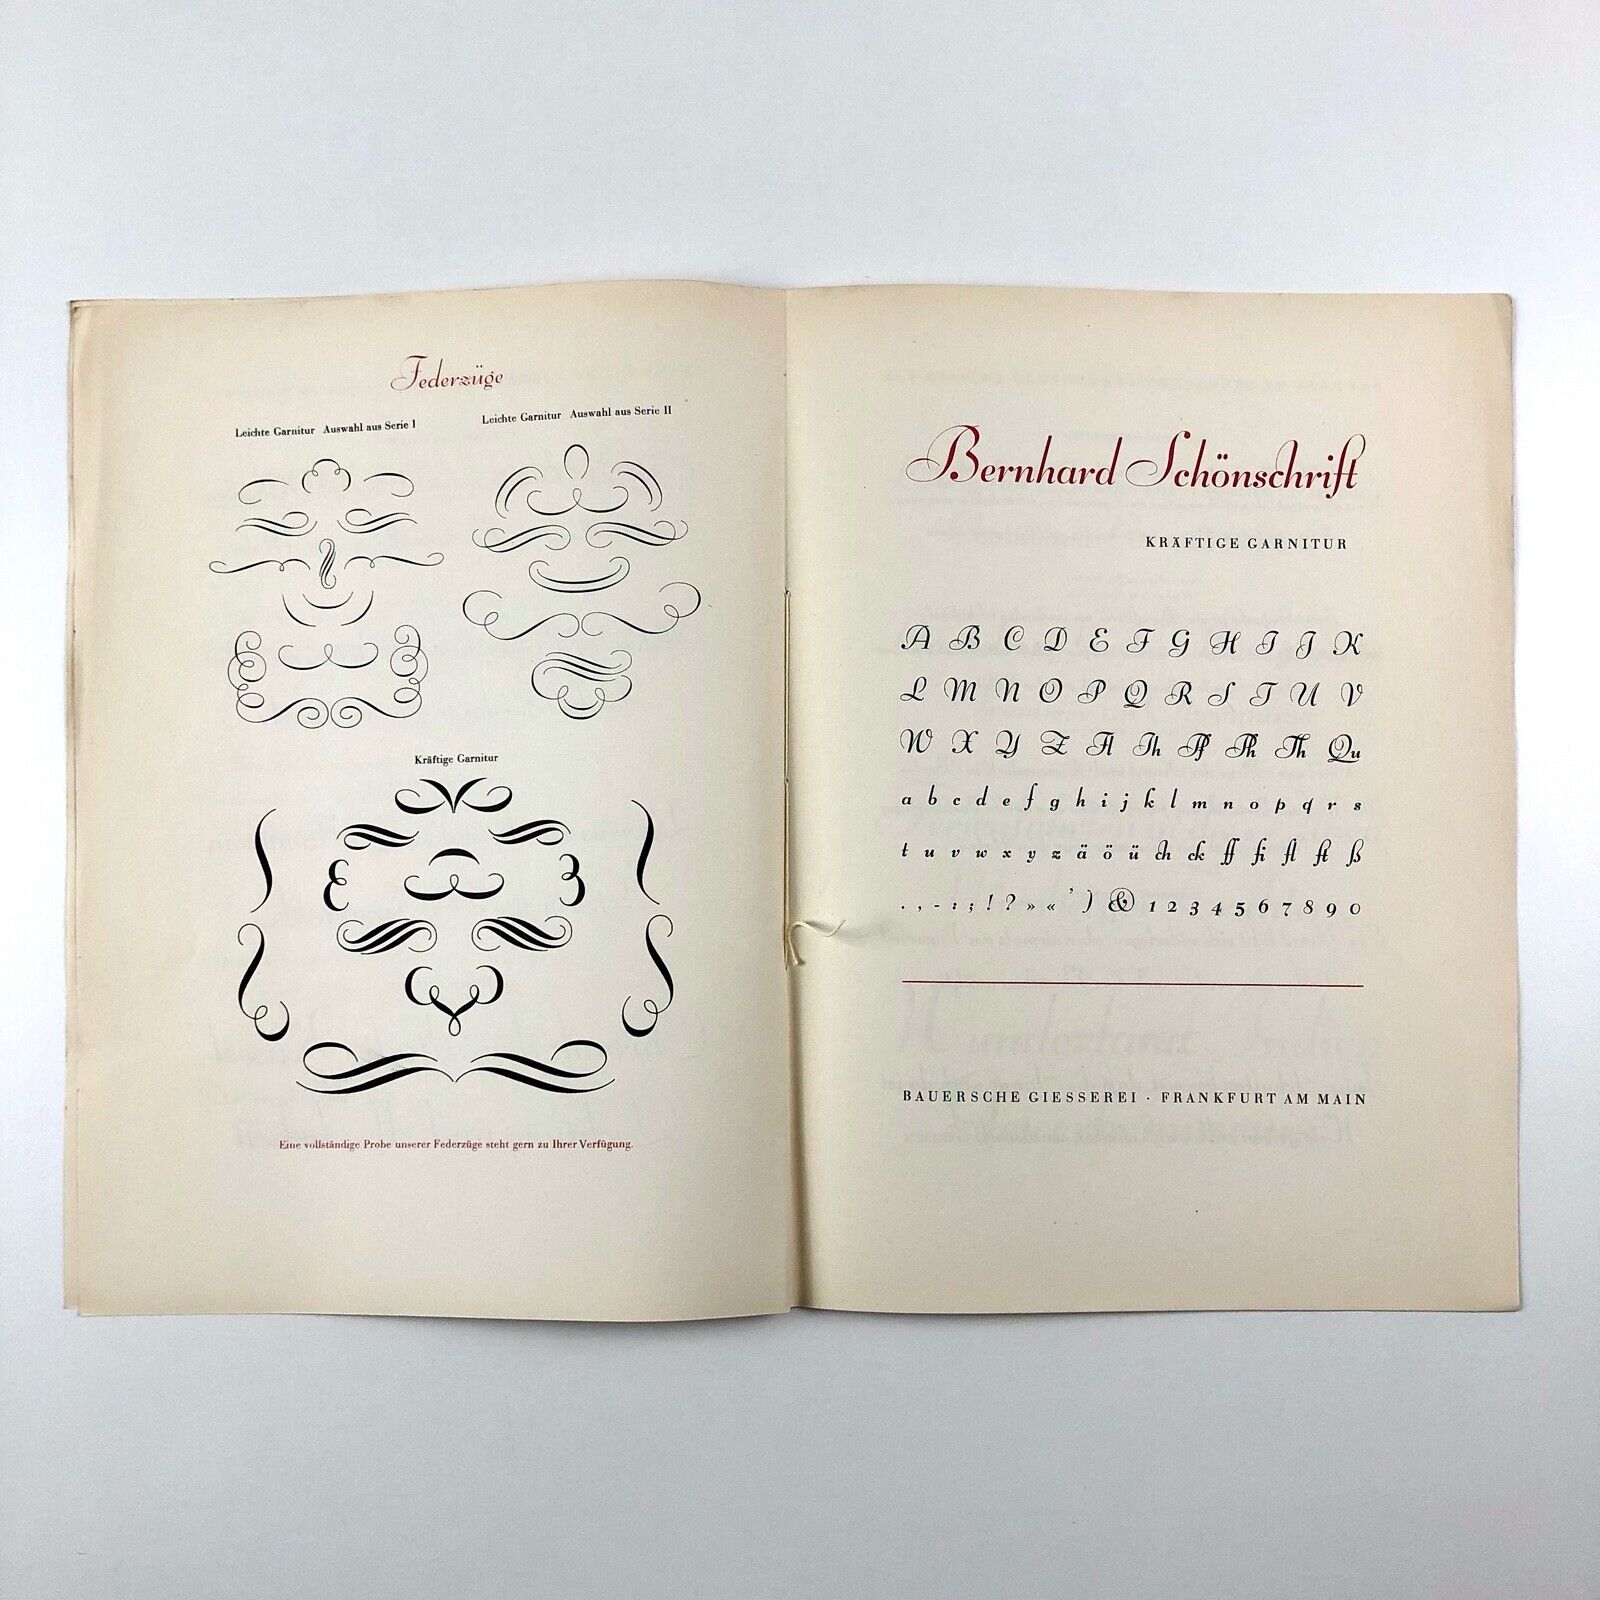 Federzüge
Leichte Garnitur Auswahl aus Serie I
Leichte Garnitur Auswahl aus Serie II
Kräftige Garnitur
Eine vollständige Probe unserer Federzüge steht gern zu Ihrer Verfügung.
Bernhard Schönschrift
KRÄFTIGE GARNITUR
A B C D E F G H I J K
L M N O P Q R S T U V
W X Y Z Fl Th Pf Ph Th Qu
a b c d e f g h i j k l m n o p q r s
t u v w x y z ä ö ü ch ck ff fi fl ft ß
. , - : ; ! ? » « ' ) & 1 2 3 4 5 6 7 8 9 0
BAUERSCHE GIESSEREI · FRANKFURT AM MAIN